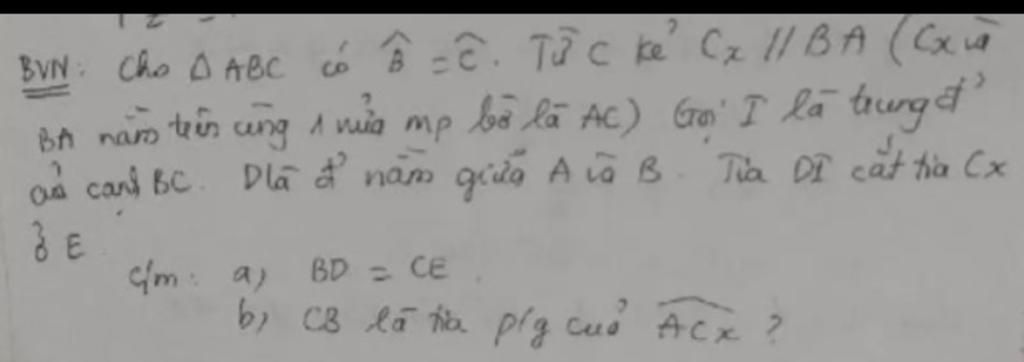 BVN: Cho Δ ABC có B̂ = Ĉ. Từ C kẻ Cx // BA (Cx và
BA nằm trên cùng 1 nửa mp bờ là AC) Gọi I là trung đ'
của cạnh BC. D là đ' nằm giữa A và B. Tia DI cắt tia Cx
ở E
c/m: a) BD = CE.
b) CB là tia p/g của ACx ?